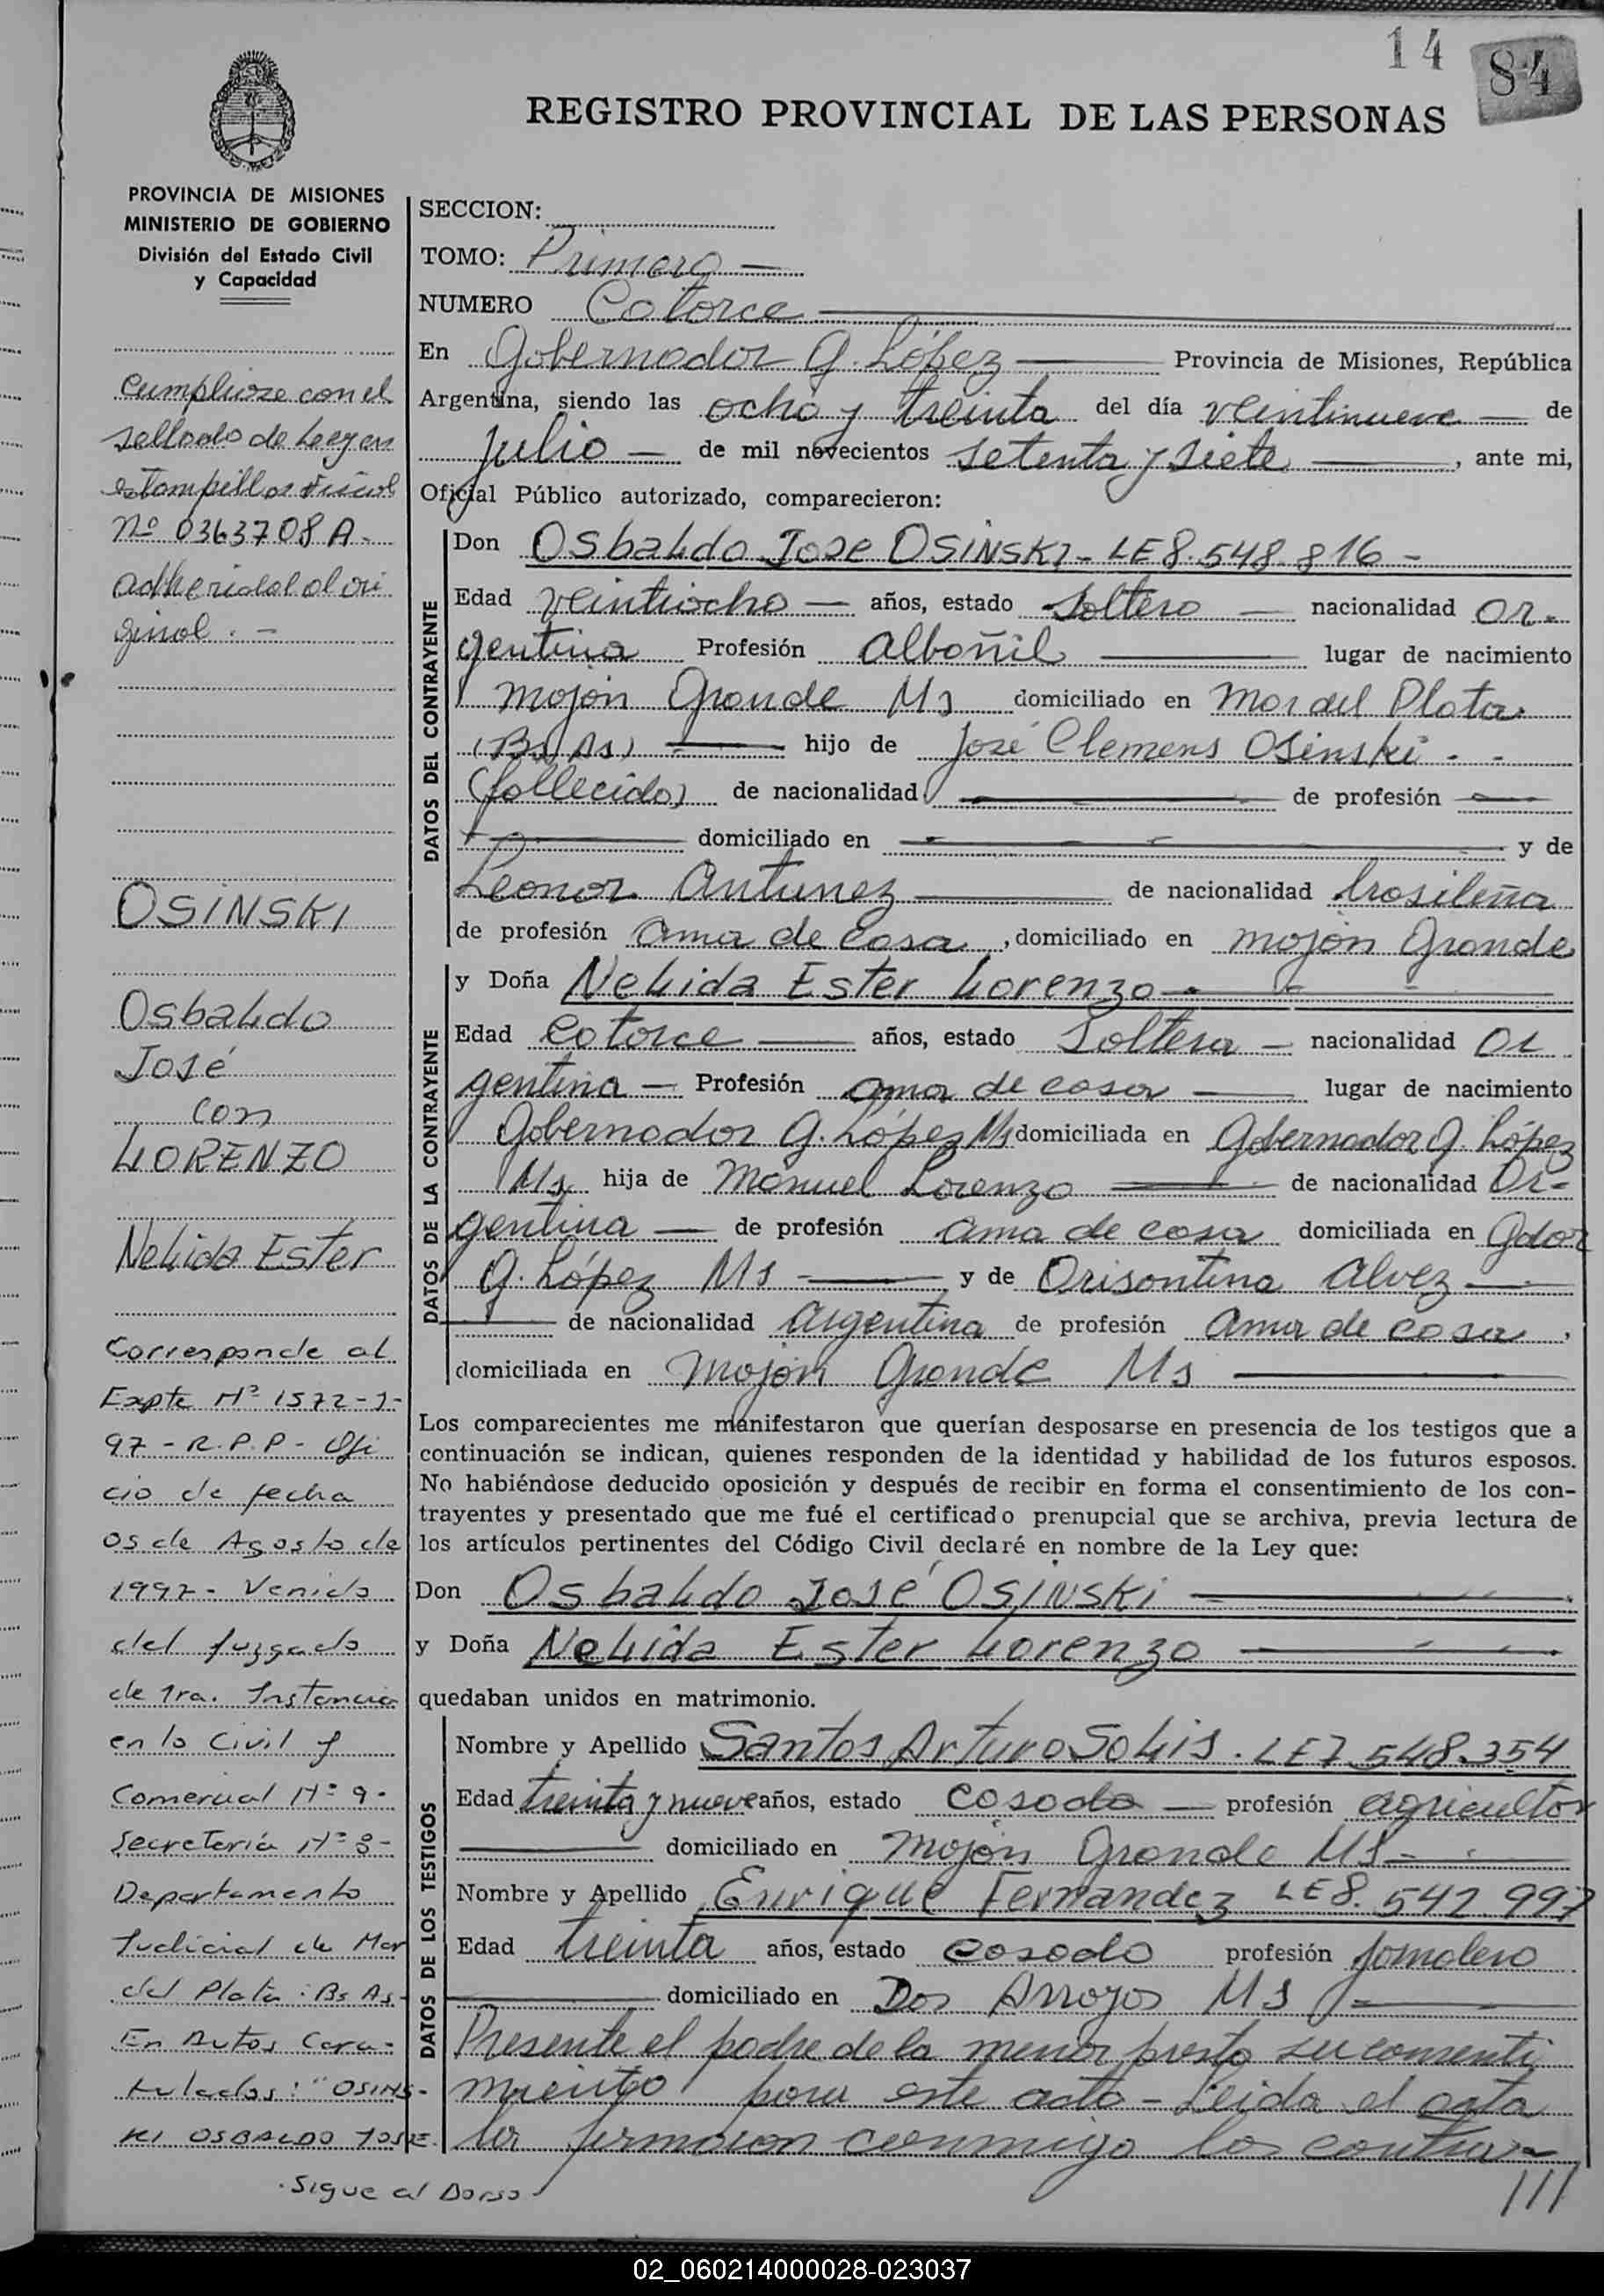 14
84
REGISTRO PROVINCIAL DE LAS PERSONAS
PROVINCIA DE MISIONES
MINISTERIO DE GOBIERNO
División del Estado Civil
y Capacidad
Cumplioze con el
sellado de Ley en
estampillas fiscal
Nº 0363708 A -
adheridas al ori
ginal . -
OSINSKI
Osbaldo
José
con
LORENZO
Nelida Ester
Corresponde al
Expte Nº 1572-J-
97 - R.P.P - Ofi
cio de fecha
05 de Agosto de
1997 - Venido
del Juzgado
de 1ra. Instancia
en lo Civil y
Comercial Nº 9 -
Secretería Nº 8 -
Departamento
Judicial de Mar
del Plata : Bs As -
En Autos Cara-
tulados : "OSINS-
KI OSBALDO JOSE.
. Sigue al Dorso
SECCION:
TOMO: Primero —
NUMERO Catorce
En Gobernador G. López — Provincia de Misiones, República
Argentina, siendo las ocho y treinta del día veintinueve — de
julio — de mil novecientos setenta y siete —, ante mi,
Oficial Público autorizado, comparecieron:
DATOS DEL CONTRAYENTE
Don Osbaldo Jose OSINSKI - LE 8.548.816 -
Edad veintiocho — años, estado soltero — nacionalidad ar-
gentina Profesión albañil — lugar de nacimiento
Mojón Grande Ms domiciliado en Mar del Plata
(Bs As) — hijo de José Clemens Osinski . -
(fallecido) de nacionalidad — de profesión —
— domiciliado en — y de
Leonor Antunez — de nacionalidad brasileña
de profesión ama de casa , domiciliado en Mojón Grande
DATOS DE LA CONTRAYENTE
y Doña Nelida Ester Lorenzo —
Edad catorce — años, estado soltera — nacionalidad ar
gentina — Profesión ama de casa — lugar de nacimiento
Gobernador G. López Ms domiciliada en Gobernador G. López
Ms hija de Manuel Lorenzo — de nacionalidad ar-
gentina — de profesión ama de casa domiciliada en Gdor
G. López Ms — y de Orisontina Alvez —
— de nacionalidad argentina de profesión ama de casa ,
domiciliada en Mojón Grande Ms —
Los comparecientes me manifestaron que querían desposarse en presencia de los testigos que a
continuación se indican, quienes responden de la identidad y habilidad de los futuros esposos.
No habiéndose deducido oposición y después de recibir en forma el consentimiento de los con-
trayentes y presentado que me fué el certificado prenupcial que se archiva, previa lectura de
los artículos pertinentes del Código Civil declaré en nombre de la Ley que:
Don Osbaldo José OSINSKI —
y Doña Nelida Ester Lorenzo —
quedaban unidos en matrimonio.
DATOS DE LOS TESTIGOS
Nombre y Apellido Santos Arturo Solis . LE 7.548.354
Edad treinta y nueve años, estado casado — profesión agricultor
— domiciliado en Mojón Grande Ms -
Nombre y Apellido Enrique Fernandez LE 8.542.997
Edad treinta años, estado casado profesión jornalero
— domiciliado en Dos Arroyos Ms —
Presente el padre de la menor presto su consenti
miento para este acto - Leida el acta
la firmaron conmigo los contra-
///
02_060214000028-023037